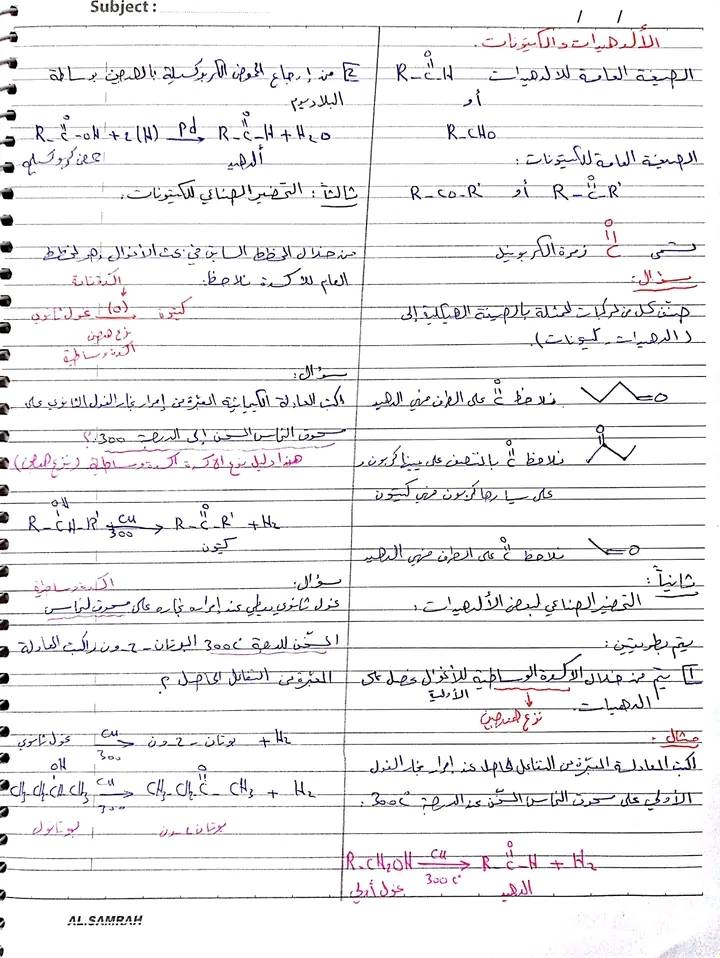 Subject :
/ /
الألدهيدات والكيتونات.
الصيغة العامة للالدهيدات R-C-H
O
أو
R-CHO
الصيغة العامة للكيتونات :
R-C-R' أو R-CO-R'
O
تسمى C زمرة الكربونيل
O
سؤال:
صنّف كل من المركبات الممثلة بالصيغة الهيكلية إلى
(الدهيدات - كيتونات).
نلاحظ C على الطرف فهي الدهيد
O
نلاحظ C بالنصف على يمينا كربون و
O
على يسارها كربون فهي كيتون
نلاحظ C على الطرف فهي الدهيد
O
ثانياً :
التحضير الصناعي لبعض الألدهيدات :
يتم بطريقتين :
1 يتم من خلال الأكسدة الوساطية للأغوال نحصل على
الأولية
الدهيدات.
نزع الهيدروجين
مثال :
اكتب المعادلة المعبّرة عن التفاعل الحاصل عند إمرار بخار الغول
الأولي على مسحوق النحاس المسخّن عند الدرجة 300C°.
R-CH2OH Cu 300C° → R-C-H + H2
O
غول أولي الدهيد
2 من إرجاع الحمض الكربوكسيلي بالهيدروجين بوساطة
البلاديوم
R-C-OH + 2(H) Pd → R-C-H + H2O
O O
حمض كربوكسيلي ألدهيد
ثالثاً : التحضير الصناعي للكيتونات.
من خلال المخطط السابق في بحث الأغوال وهو المخطط
العام للأكسدة نلاحظ:
أكسدة تامة
غول ثانوي (O) → كيتون
نزع هيدروجين
أكسدة وساطية
سؤال:
اكتب المعادلة الكيميائية المعبّرة عن إمرار بخار الغول الثانوي على
مسحوق النحاس المسخن إلى الدرجة 300.
هذا دليل نوع الأكسدة أكسدة وساطية (نزع هيدروجين)
OH
R-CH-R' Cu 300 → R-C-R' + H2
O
كيتون
سؤال: أكسدة وساطية
غول ثانوي يعطي عند إمرار بخاره على مسحوق النحاس
المسخّن للدرجة 300C° البوتان-2-ون اكتب المعادلة
المعبّرة عن التفاعل الحاصل
غول ثانوي Cu 300 → بوتان-2-ون + H2
OH
CH3CH2CHCH3 Cu 300 → CH3-CH2C-CH3 + H2
O
بوتانول بوتان-2-ون
AL.SAMRAH